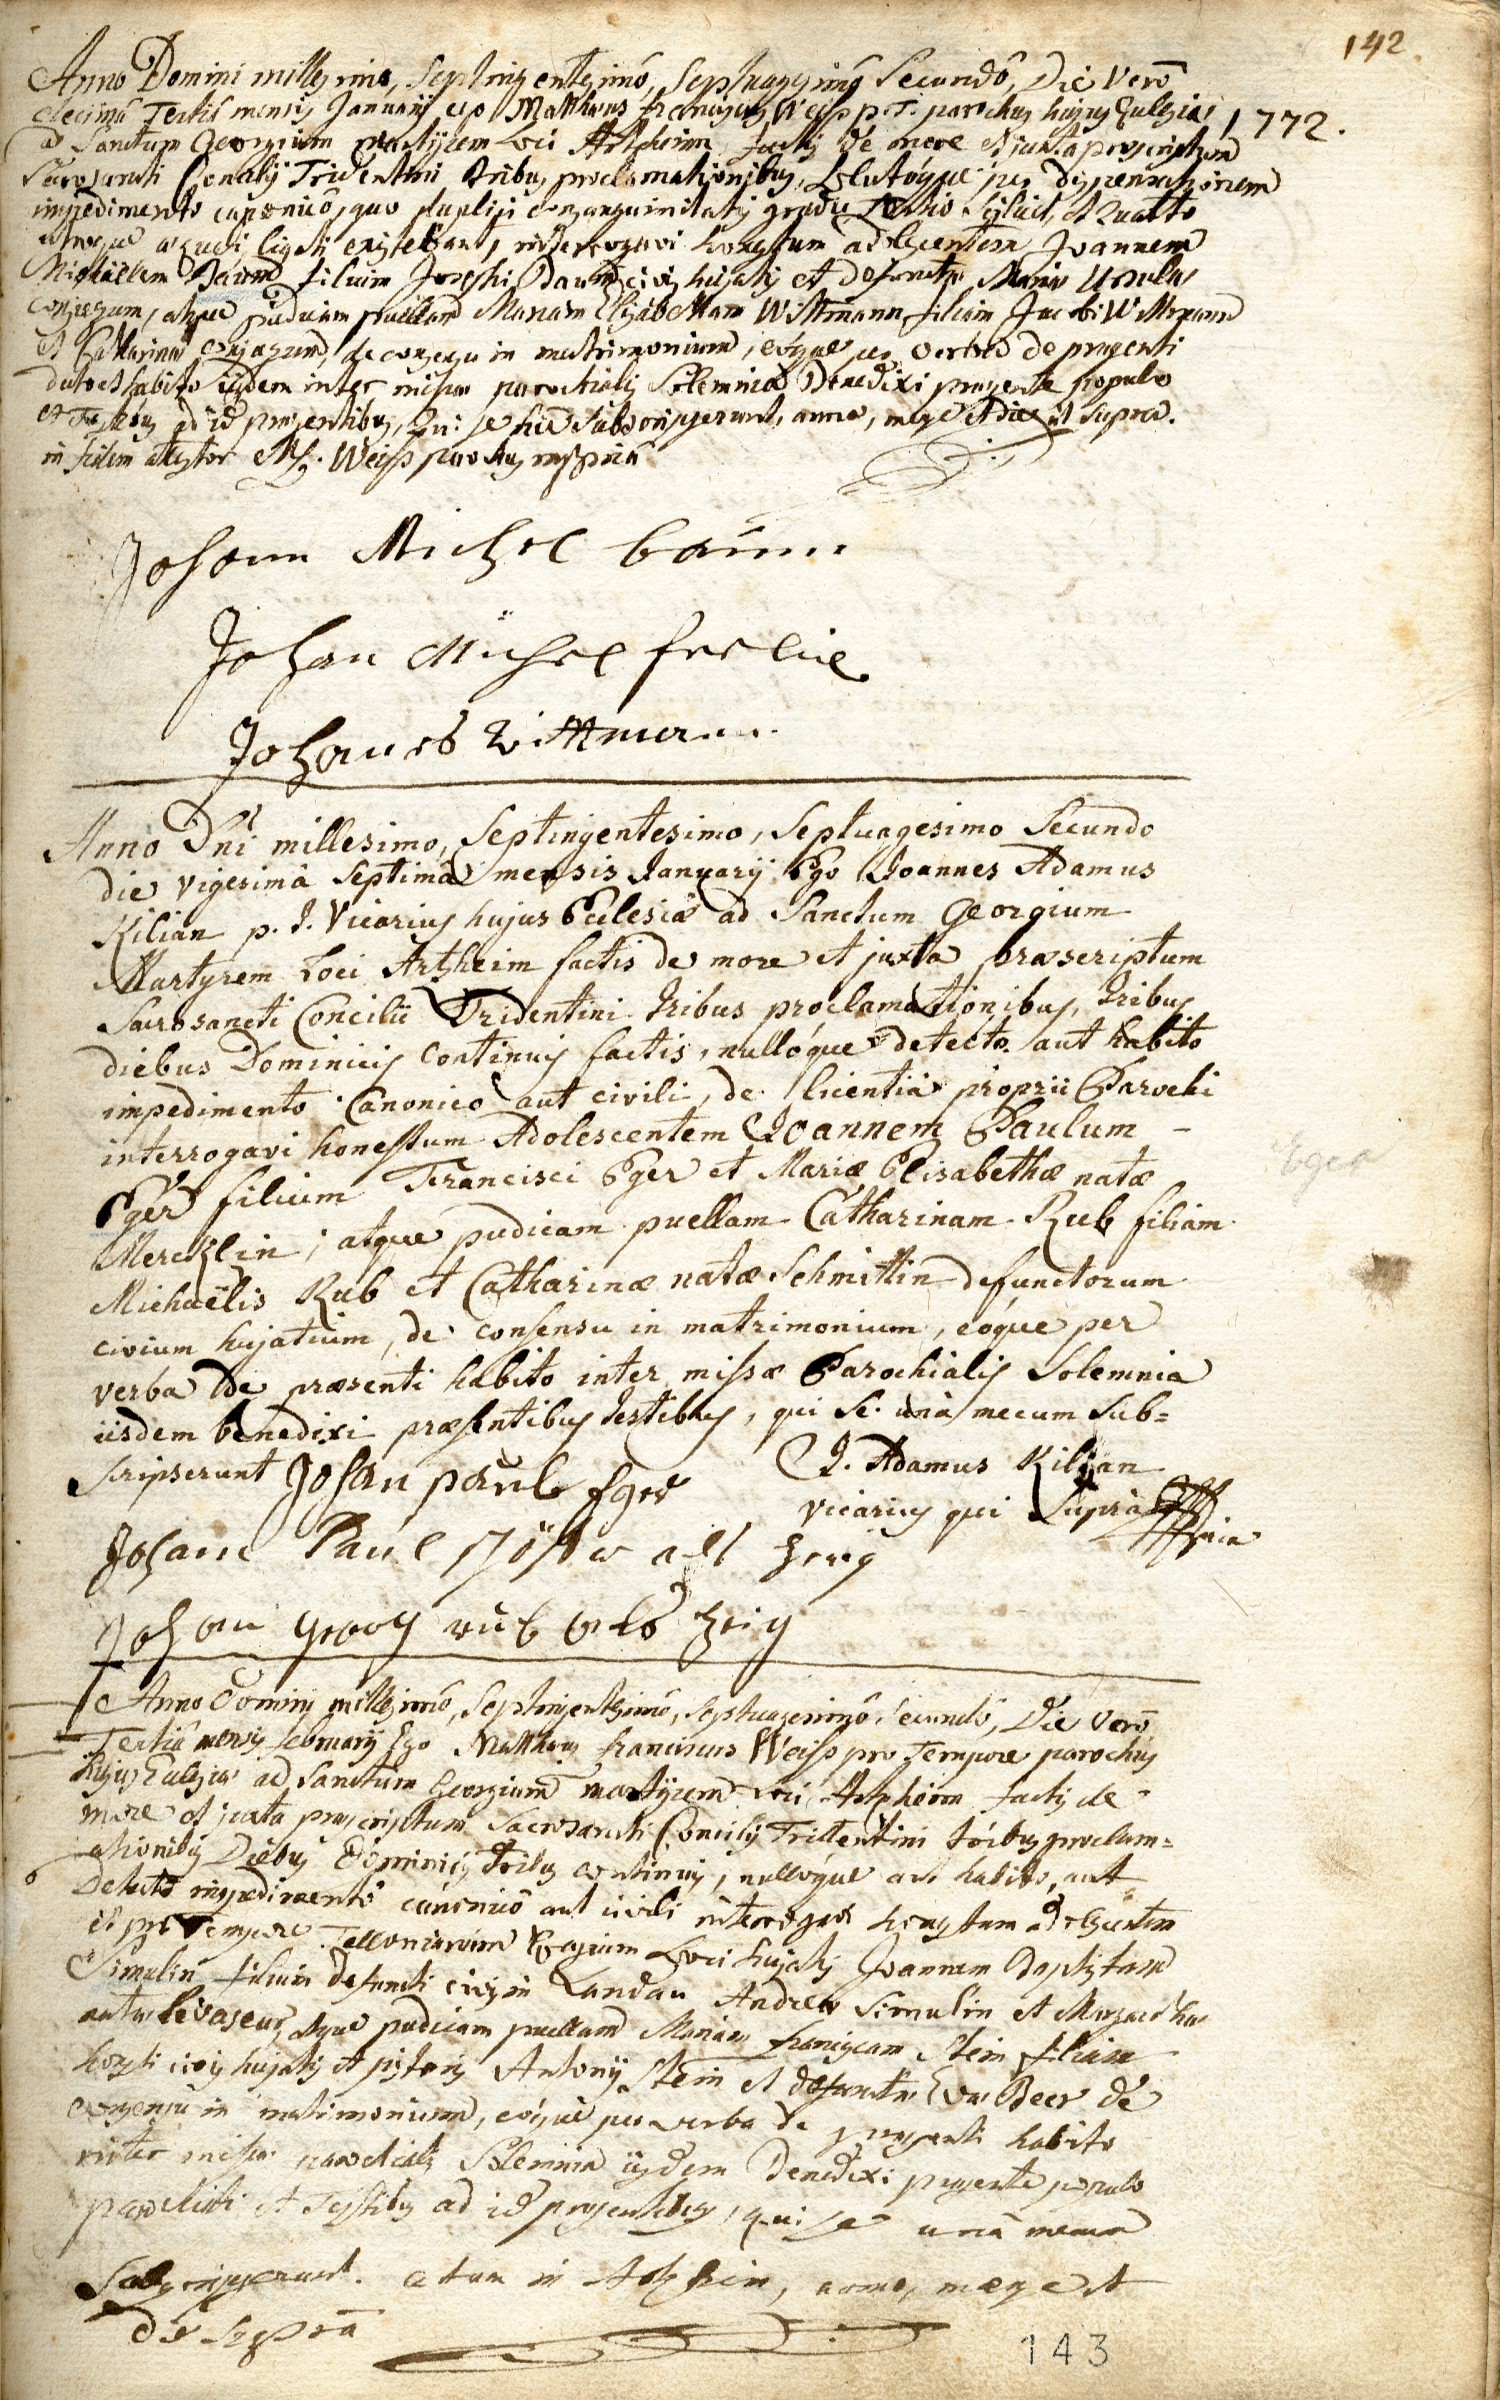 142
Anno Domini millesimo, Septingentesimô, Septuagesimô Secundô, Die Verô
decimâ Tertiâ mensis Januarij ego Matthæus franciscus Weiss p.T. parochus hujus Ecclesiæ
1772.
ad Sanctum Georgium Martÿrem loci Artzheim, factis de more et juxta præscriptum
Sacrosancti Concilij Tridentini tribus proclamationibus, Solutóque per dispensationem
impedimento canonicô, quo duplici consanguinitatis gradu tertio scilicet, et Quarto
utroque æquali ligati existebant, interrogavi honestum adolescentem Joannem
Michaëlem Baum filium Josephi Baum civis hujatis et defunctæ Mariæ Ursulæ
conjugum, atque pudicam puellam Mariam Elisabetham Wittmann filiam Jacobi Wittmann
et Catharinæ conjugum, de consensu in matrimonium, eóque per verba de præsenti
dato et habito iisdem inter missæ parochialis Solemnia Benedixi præsente populo
et Testibus ad id præsentibus, Qui se hic subscripserunt, anno, mense et die ut supra.
in fidem attestor Weiss parochus mppria
Johann Michel baum
Johan Michel
Johanes wittman
Anno Dñi millesimo, Septingentesimo, Septuagesimo Secundo
die vigesimâ Septimâ mensis Januarÿ Ego Joannes Adamus
Kilian p. t. Vicarius hujus Ecclesiæ ad Sanctum Georgium
Martyrem Loci Artzheim factis de more et juxta præscriptum
Sacrosancti Concilii Tridentini tribus proclamationibus, tribus
diebus Dominicis continuis factis, nullóque detecto aut habito
impedimento Canonico aut civili, de licentiâ proprii Parochi
interrogavi honestum Adolescentem Joannem Paulum –
Eger filium Francisci Eger et Mariæ Elisabethæ natæ
Eger
Mercklin; atque pudicam puellam Catharinam Rub filiam
Michaëlis Rub et Catharinæ natæ Schmittin defunctorum
civium hujatium, de consensu in matrimonium, eóque per
verba de præsenti habito inter missæ Parochialis Solemnia
iisdem benedixi præsentibus testibus, qui se unà mecum sub=
scripserunt Johan paul Eger
J. Adamus Kilian
vicarius qui Supra mppria
Johann Paul als zeig
Johan georg rub als zeig
Anno Domini millesimô, Septingentesimô, Septuagesimô, Secundô, Die Verô
Tertiâ mensis februarÿ Ego Matthæus franciscus Weiss pro Tempore parochus
hujus Ecclesiæ ad Sanctum Georgium martÿrem loci Artzheim factis de
more et juxta præscriptum Sacrosancti Concilij Tridentini tribus proclam=
ationibus Diebus Dominicis tribus continuis, nullóque aut habito, aut
Detecto impedimento canonicô aut civili interrogavi honestum adolescentem
et pro Tempore Telloniarium Regium Loci hujatis Joannem Baptistam
Simulin filium defuncti civis in Landau Andreæ Simulin et Margarethæ
natæ levaseur, atque pudicam puellam Mariam franciscam Stein filiam
honesti civis hujatis et pistoris Antonij Stein et defunctæ Evæ Beer de
consensu in matrimonium, eóque per verba de præsenti habito
inter missæ parochialis Solemnia iisdem Benedixi præsente populo
parochiali et Testibus ad id præsentibus, qui se unà mecum
Subscripserunt. actum in Artzheim, anno, mense et
die supra
143